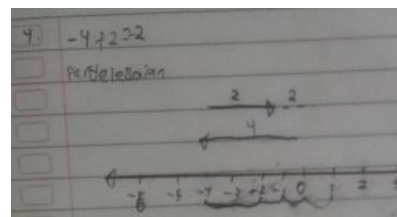 4. -4+2=-2
Penyelesaian
2 -2
4
-5 -4 -3 0 2